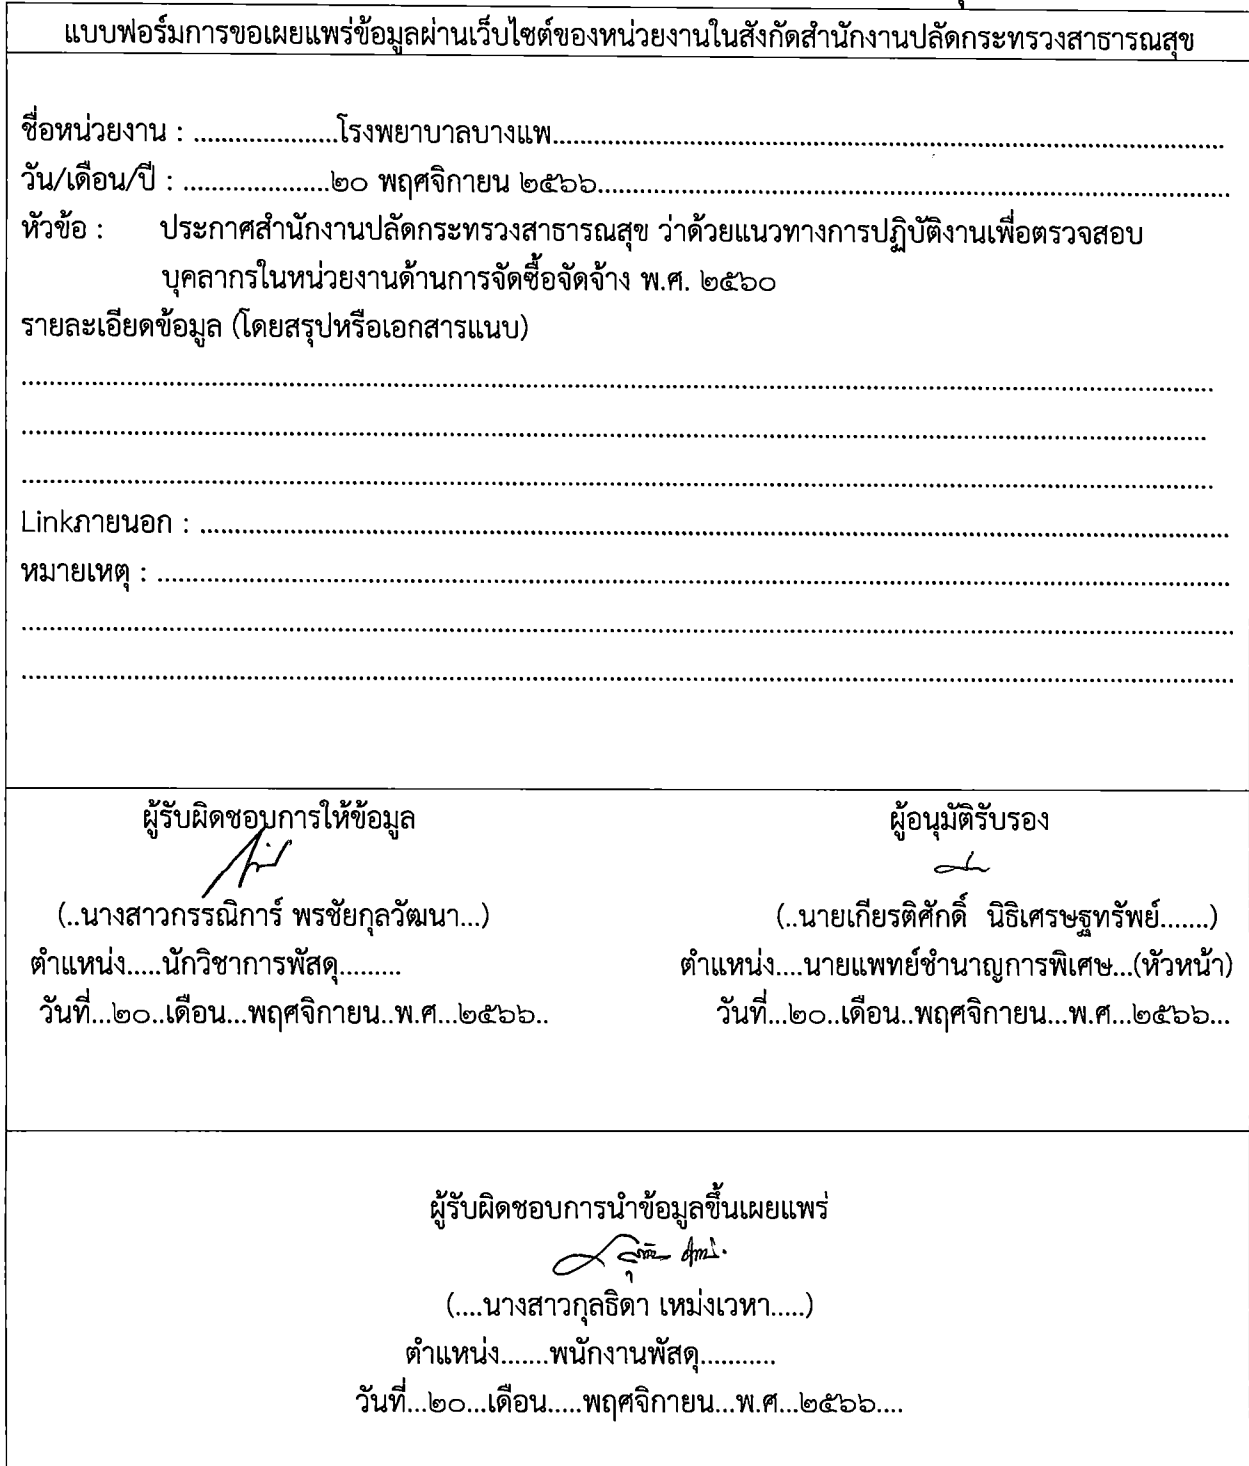 แบบฟอร์มการขอเผยแพร่ข้อมูลผ่านเว็บไซต์ของหน่วยงานในสังกัดสำนักงานปลัดกระทรวงสาธารณสุข
ชื่อหน่วยงาน : .....................โรงพยาบาลบางแพ....................................................................................................
วัน/เดือน/ปี : ......................๒๐ พฤศจิกายน ๒๕๖๖..............................................................................................
หัวข้อ : ประกาศสำนักงานปลัดกระทรวงสาธารณสุข ว่าด้วยแนวทางการปฏิบัติงานเพื่อตรวจสอบ
บุคลากรในหน่วยงานด้านการจัดซื้อจัดจ้าง พ.ศ. ๒๕๖๐
รายละเอียดข้อมูล (โดยสรุปหรือเอกสารแนบ)
Linkภายนอก : ....................................................................................................
หมายเหตุ : ....................................................................................................
ผู้รับผิดชอบการให้ข้อมูล ผู้อนุมัติรับรอง
(..นางสาวกรรณิการ์ พรชัยกุลวัฒนา...) (..นายเกียรติศักดิ์ นิธิเศรษฐทรัพย์.......)
ตำแหน่ง.....นักวิชาการพัสดุ......... ตำแหน่ง....นายแพทย์ชำนาญการพิเศษ...(หัวหน้า)
วันที่...๒๐..เดือน...พฤศจิกายน..พ.ศ...๒๕๖๖.. วันที่...๒๐..เดือน..พฤศจิกายน...พ.ศ...๒๕๖๖...
ผู้รับผิดชอบการนำข้อมูลขึ้นเผยแพร่
(....นางสาวกุลธิดา เหม่งเวหา.....)
ตำแหน่ง.......พนักงานพัสดุ...........
วันที่...๒๐...เดือน.....พฤศจิกายน...พ.ศ...๒๕๖๖....